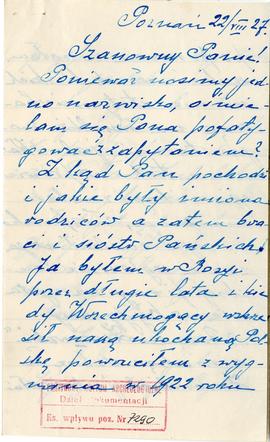 Poznań 22/VIII 27.
Szanowny Panie!
Ponieważ nosimy jed
no nazwisko, ośmie
lam się Pana pofaty
gować zapytaniem?
Z kąd Pan pochodzi
i jakie były imiona
rodziców a zatem bra
ci i sióstr Pańskich.
Ja byłem w Rosyi
przez długie lata i kie
dy Wszechmogący wskrze
sił naszą ukochaną Pol
skę powróciłem z wyg
nania w 1922 roku
ARCHEOLOGICZNE
Dział Dokumentacji
Ks. wpływu poz. Nr 7290